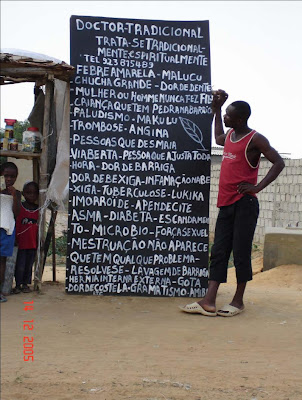 DOCTOR-TRADICIONAL
TRATA-SE TRADICIONAL-
MENTE: ESPIRITUALMENTE
TEL 923815489
FEBRE AMARELA-MALUCU
CHUCHA GRANDE-DOR DE DENTE
MULHER OU HOMEM NUNCA FEZ FILHO
CRIANÇA QUE TEM PEDRA NA BARRIGA
PALUDISMO-MAKULU
TROMBOSE-ANGINA
PESSOA QUE DESMAIA
VIA BERTA-PESSOA QUE AJUSTA TODA
HORA-DOR DE BARRIGA
DOR DE BEXIGA-INFAMAÇÃO NA BE-
XIGA-TUBERCULOSE-LUKIKA
IMORROI DE-APENDECITE
ASMA-DIABETA-ESCANDAMEN
TO-MICROBIO-FORÇA SEXUAL
MESTRUAÇÃO NÃO APARECE
QUEM TEM QUALQUER PROBLEMA-
RESOLVESE-LAVAGEM DE BARRIGA
HERMIA INTERNA EXTERNA-GOTA
DOR DE COSTELA-GRAMATISMO-AMBI
14 12 2005